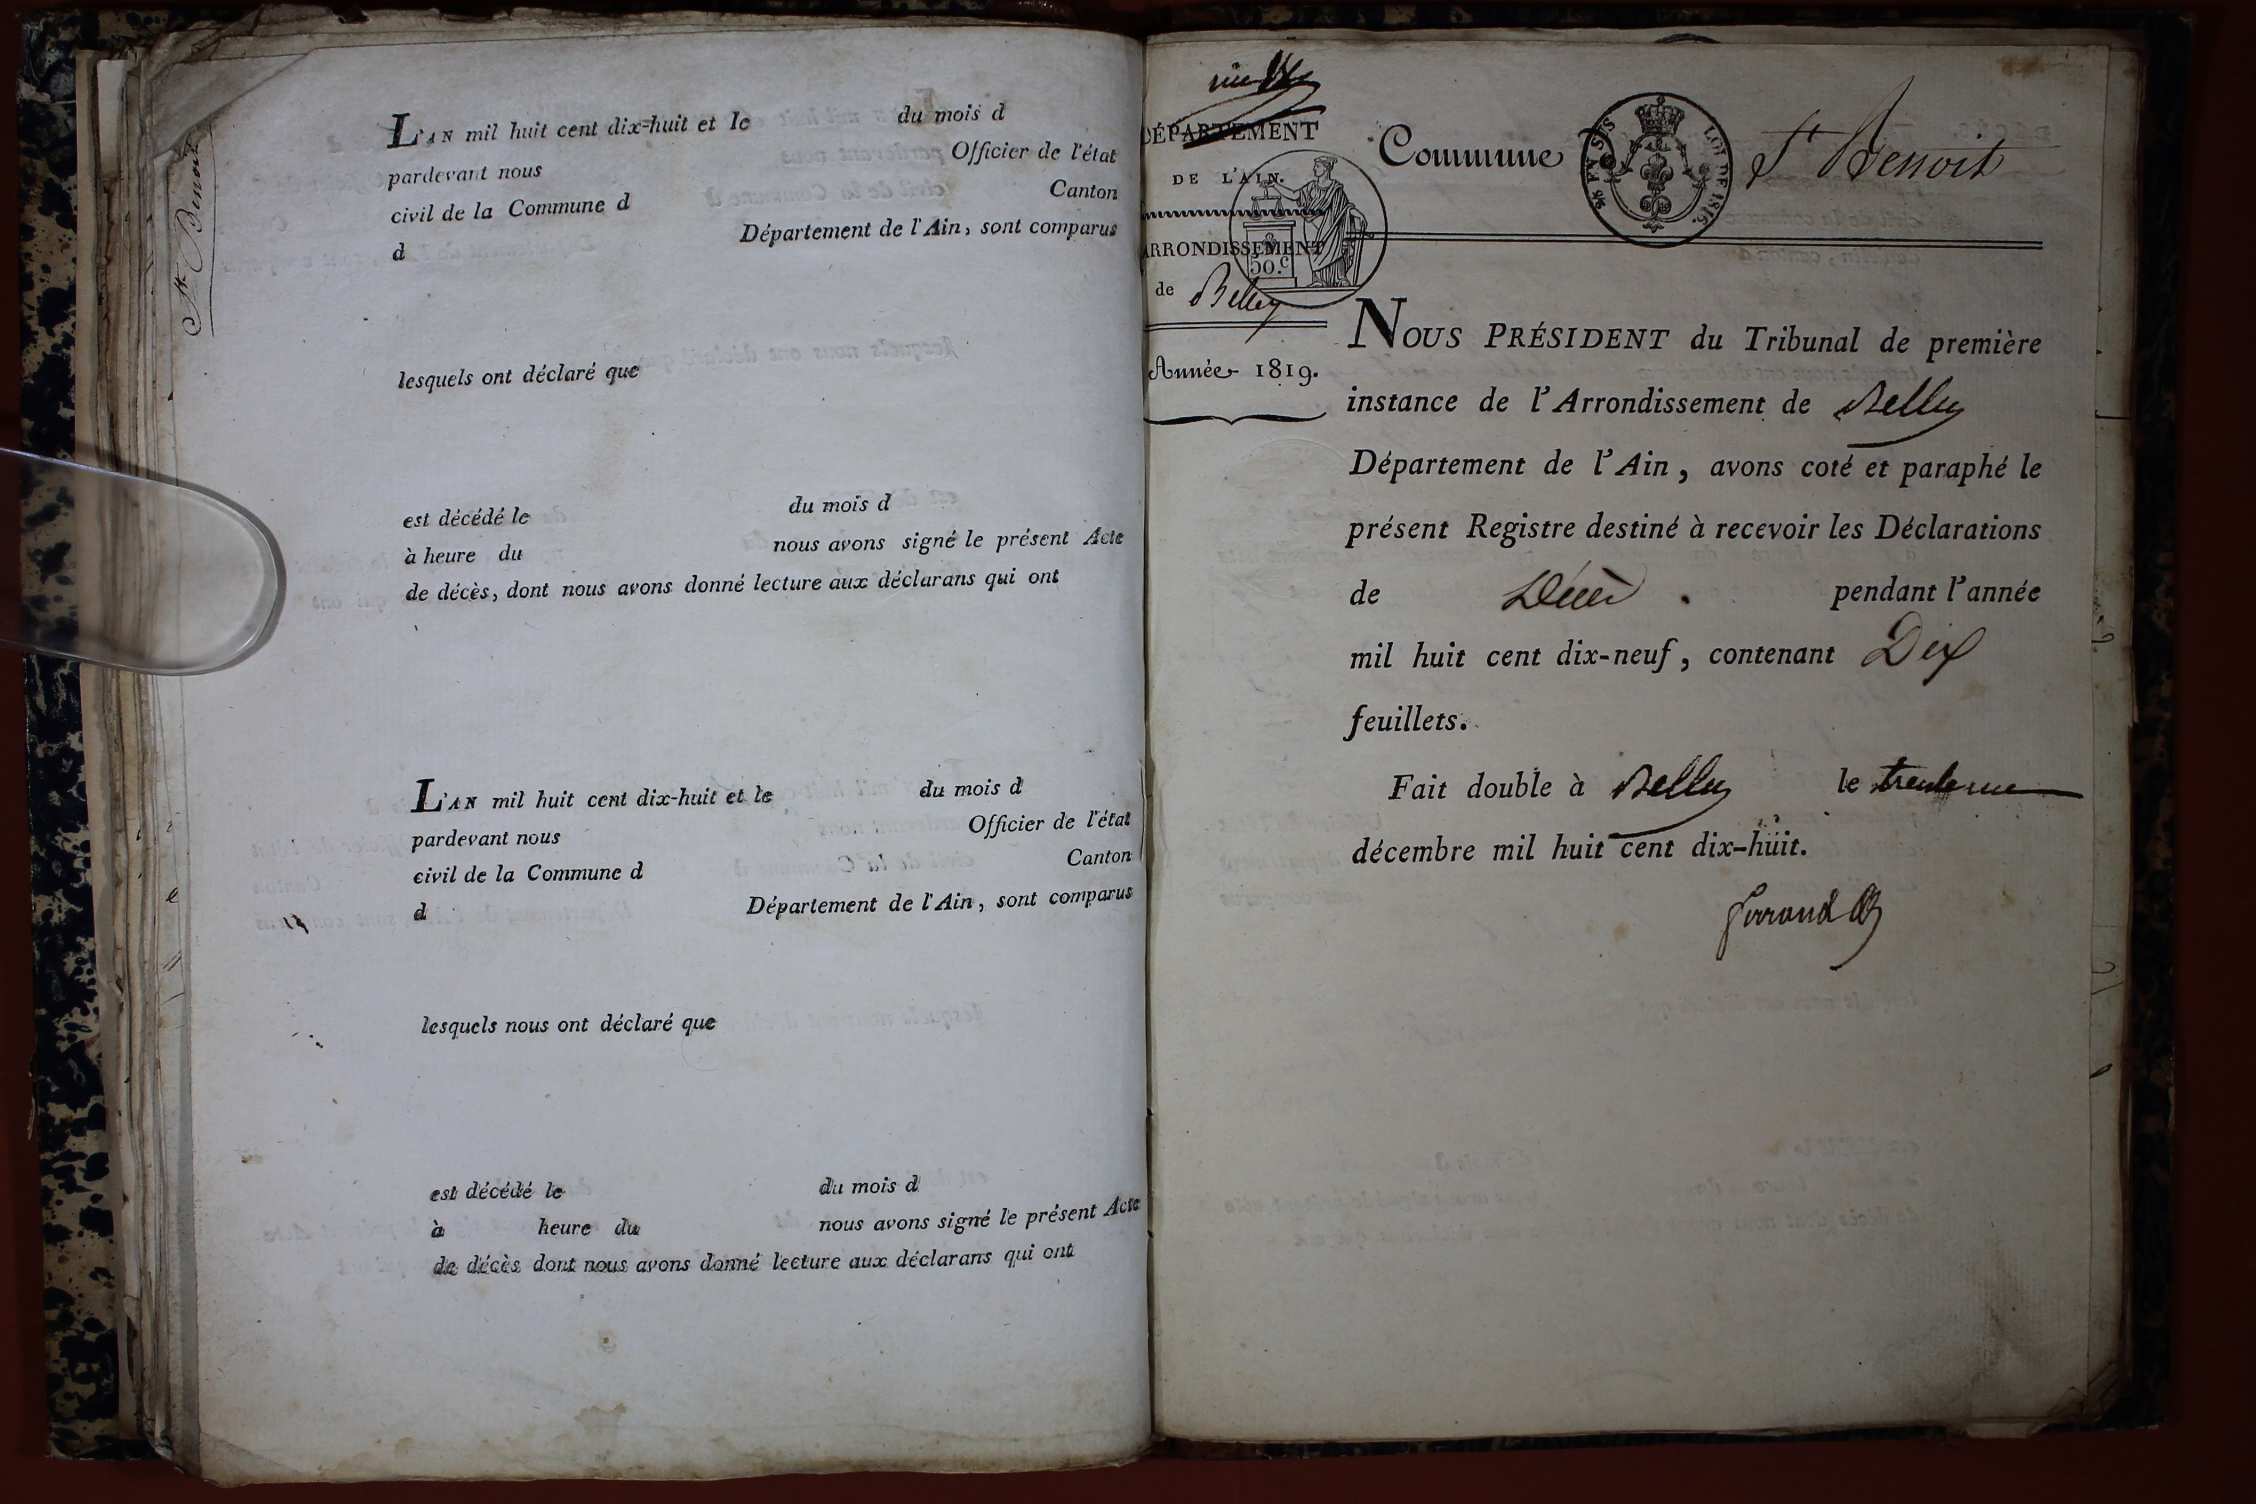 St. Benoit
L'AN mil huit cent dix-huit et le du mois d
pardevant nous Officier de l'état
civil de la Commune d Canton
d Département de l'Ain, sont comparus
lesquels ont déclaré que
est décédé le du mois d
à heure du nous avons signé le présent Acte
de décès, dont nous avons donné lecture aux déclarans qui ont
L'AN mil huit cent dix-huit et le du mois d
pardevant nous Officier de l'état
civil de la Commune d Canton
d Département de l'Ain, sont comparus
lesquels nous ont déclaré que
est décédé le du mois d
à heure du nous avons signé le présent Acte
de décès dont nous avons donné lecture aux déclarans qui ont
DÉPARTEMENT
DE L'AIN.
ARRONDISSEMENT
50.c
de Belley
Année 1819.
Commune D St Benoit
LOI DE 1816.
NOUS PRÉSIDENT du Tribunal de première
instance de l'Arrondissement de Belley
Département de l'Ain, avons coté et paraphé le
présent Registre destiné à recevoir les Déclarations
de Décès. pendant l'année
mil huit cent dix-neuf, contenant Dix
feuillets.
Fait double à Belley le trente un
décembre mil huit cent dix-huit.